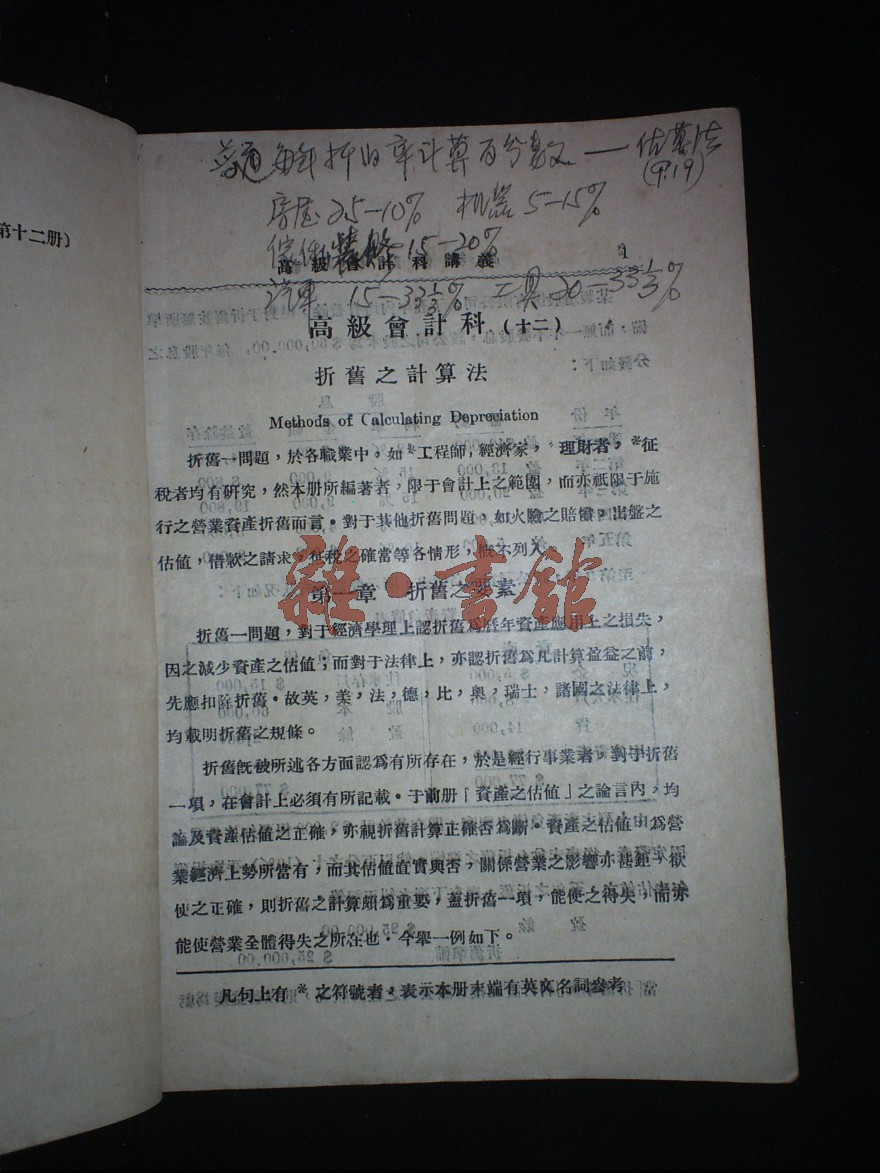 第十二册)
普通每年折旧率计算百分数 — 估策法
(P.19)
房屋 25—10% 机器 5—15%
傢俬裝修 15—20%
高級會計科講義 1
汽車 15—33⅓% 工具 20—33⅓%
高級會計科(十二)
折舊之計算法
Methods of Calculating Depreciation
折舊一問題,於各職業中。如*工程師,經濟家,理財者,*征
稅者均有研究,然本册所編著者,限于會計上之範圍,而亦祇限于施
行之營業資產折舊而言。對于其他折舊問題。如火險之賠償,出盤之
估値,借欵之請求,征稅之確當等各情形,概不列入。
第一章 折舊之要素
折舊一問題,對于經濟學理上認折舊爲歷年資產應用上之損失,
因之減少資產之估値;而對于法律上,亦認折舊爲凡計算盈益之前,
先應扣除折舊。故英,美,法,德,比,奧,瑞士,諸國之法律上,
均載明折舊之規條。
折舊旣被所述各方面認爲有所存在,於是經行事業者,對于折舊
一項,在會計上必須有所記載。于前册「資產之估値」之論言內,均
論及資產估値之正確,亦視折舊計算正確否爲斷。資產之估値,爲營
業經濟上勢所當有,而其估値直實與否,關係營業之影響亦甚鉅。欲
使之正確,則折舊之計算頗爲重要,蓋折舊一項,能使之得失,而亦
能使營業全體得失之所在也。今舉一例如下。
凡句上有*之符號者,表示本册末端有英文名詞參考
雜·書館